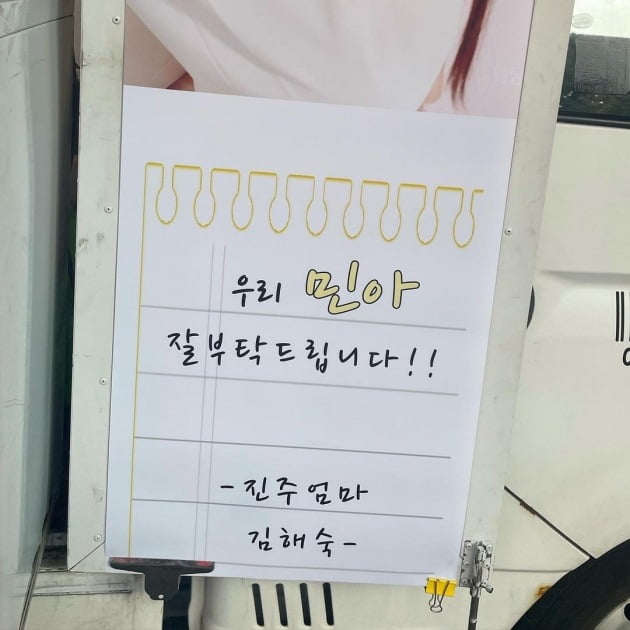 우리 민아
잘부탁드립니다!!
-진주엄마
김해숙-